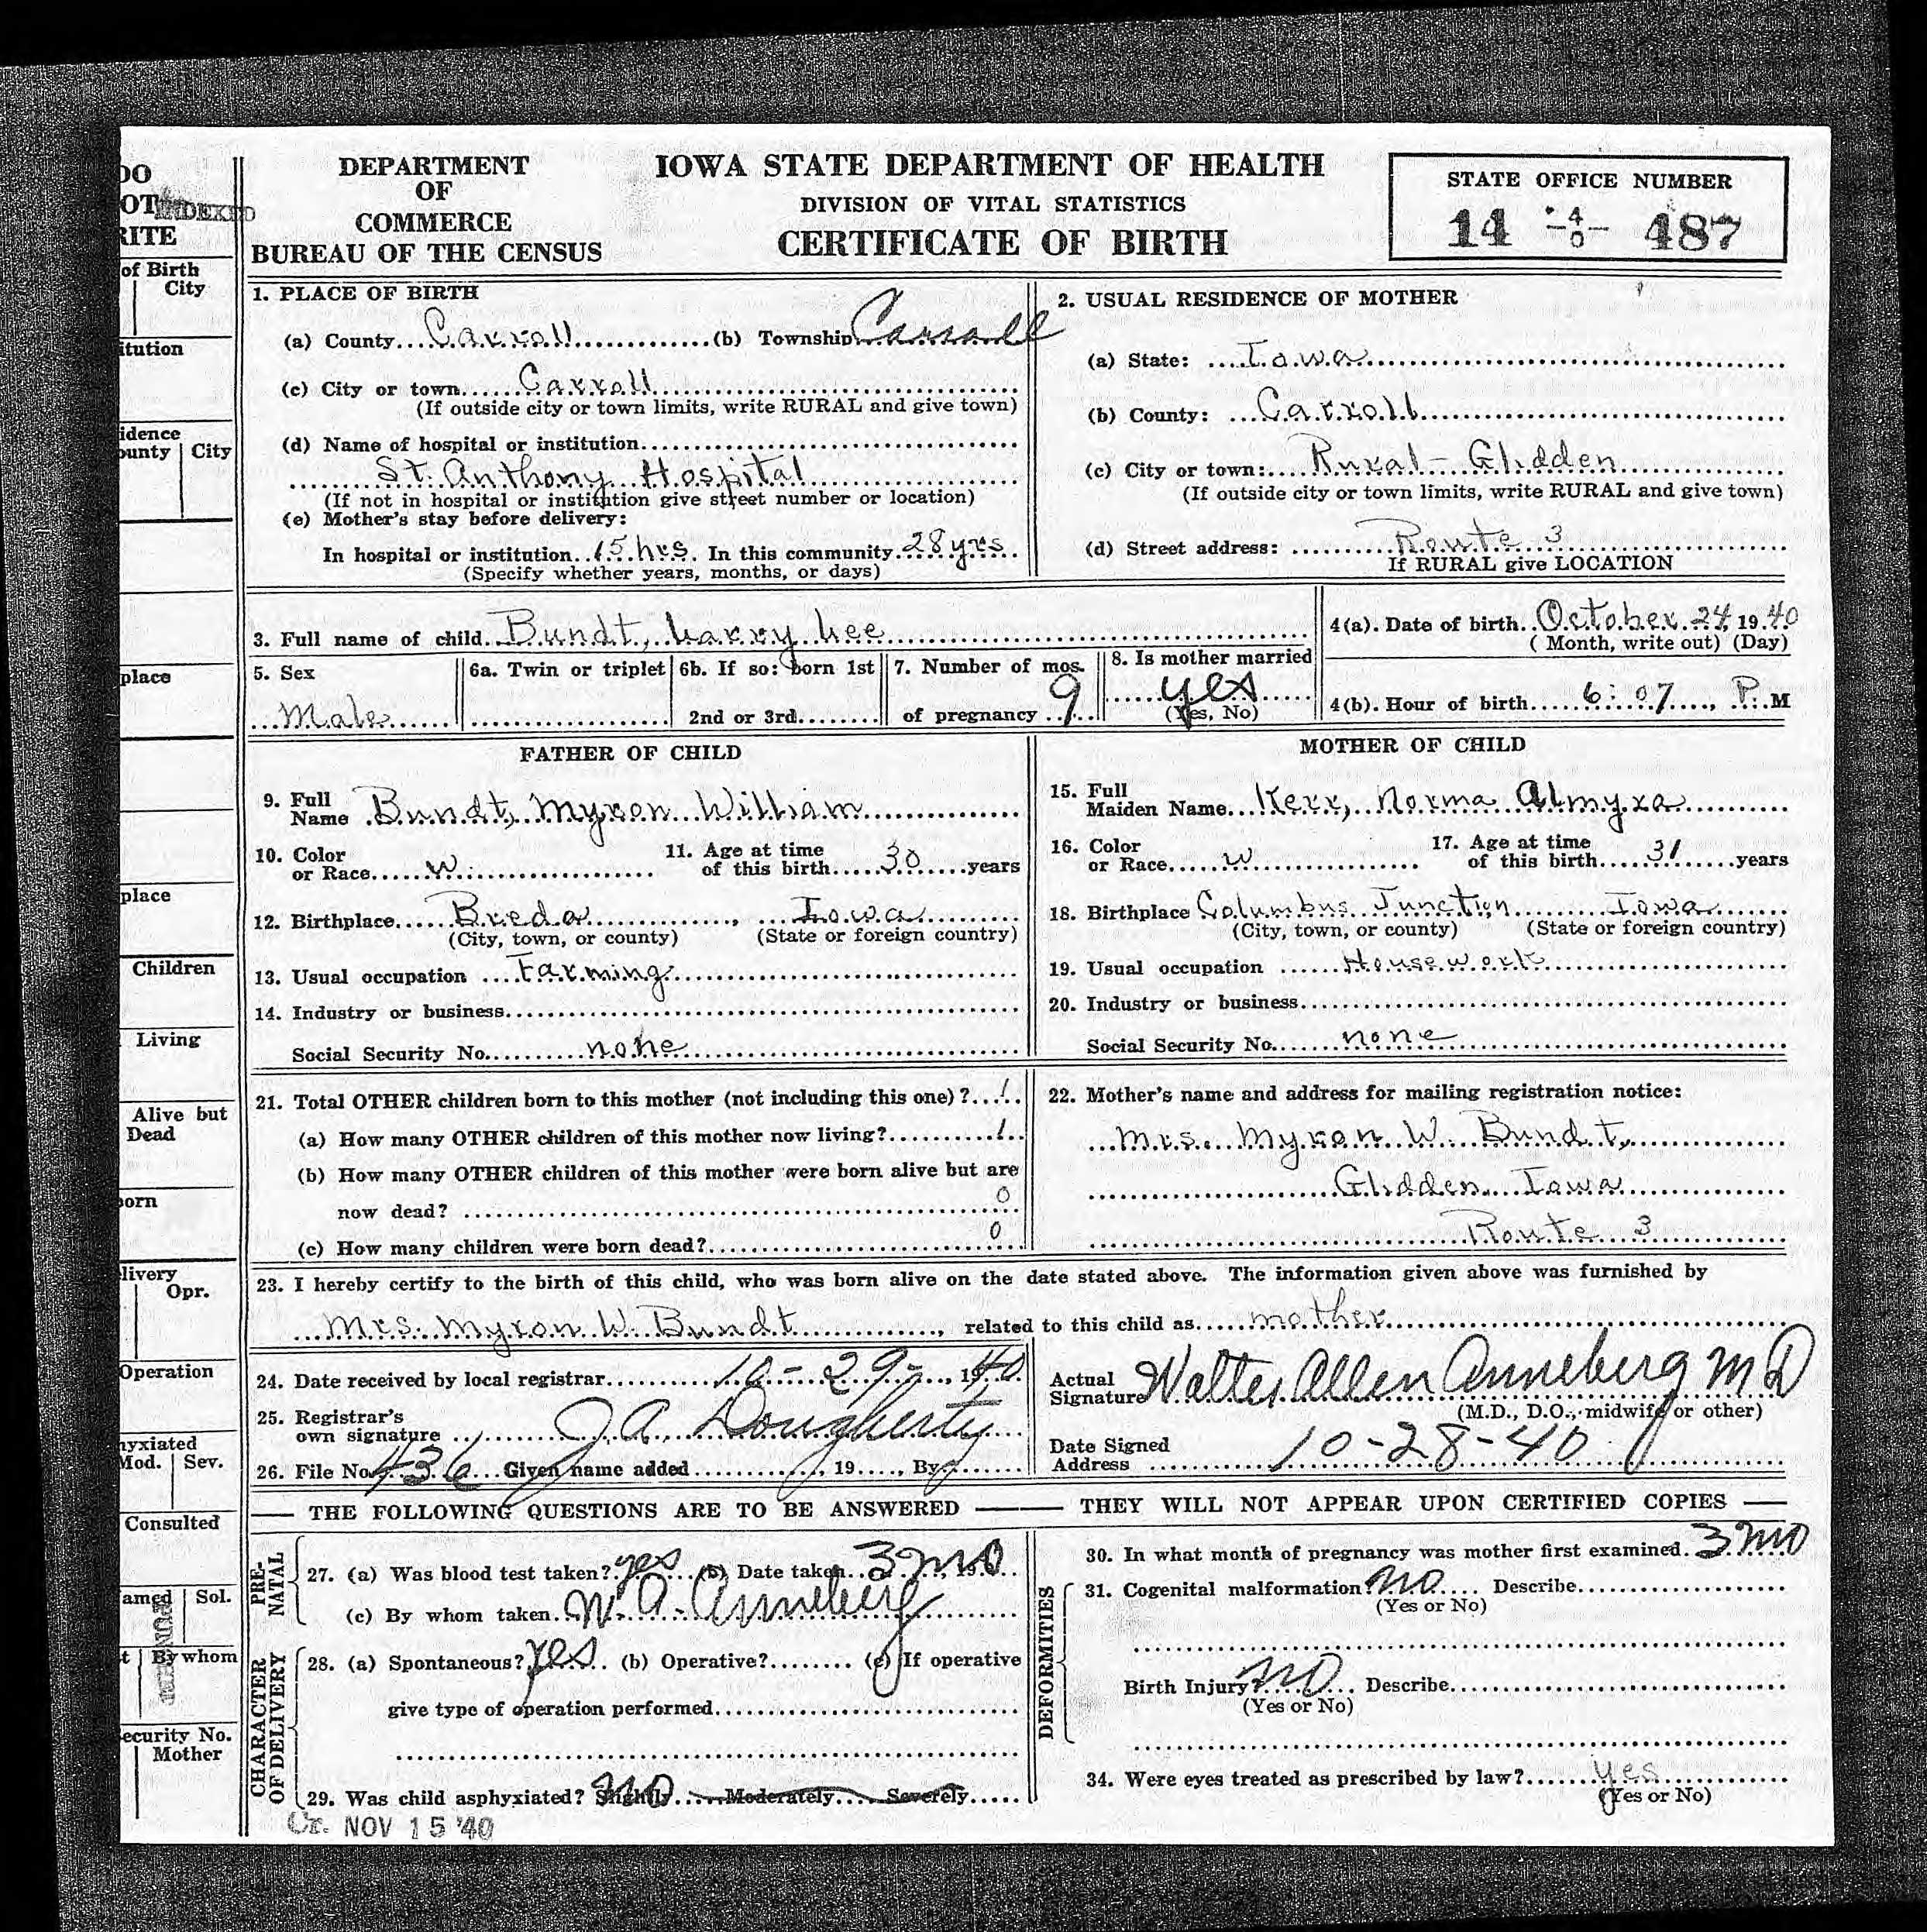 DEPARTMENT
OF
COMMERCE
BUREAU OF THE CENSUS
IOWA STATE DEPARTMENT OF HEALTH
DIVISION OF VITAL STATISTICS
CERTIFICATE OF BIRTH
STATE OFFICE NUMBER
14 -40- 487
DO
OT INDEXED
RITE
of Birth
City
itution
idence
ounty | City
place
place
Children
Living
Alive but
Dead
orn
livery
Opr.
Operation
hyxiated
Mod. | Sev.
Consulted
amed | Sol.
t | By whom
ecurity No.
Mother
1. PLACE OF BIRTH
(a) County Carroll (b) Township Carroll
(c) City or town Carroll
(If outside city or town limits, write RURAL and give town)
(d) Name of hospital or institution
St. Anthony Hospital
(If not in hospital or institution give street number or location)
(e) Mother's stay before delivery:
In hospital or institution 15 hrs. In this community 28 yrs
(Specify whether years, months, or days)
2. USUAL RESIDENCE OF MOTHER
(a) State: Iowa
(b) County: Carroll
(c) City or town: Rural - Glidden
(If outside city or town limits, write RURAL and give town)
(d) Street address: Route 3
If RURAL give LOCATION
3. Full name of child Bundt, Larry Lee
4(a). Date of birth October 24 1940
(Month, write out) (Day)
5. Sex Male
6a. Twin or triplet
6b. If so: born 1st
2nd or 3rd
7. Number of mos.
of pregnancy 9
8. Is mother married
yes
(Yes, No)
4(b). Hour of birth 6:07, P.M
FATHER OF CHILD
9. Full
Name Bundt, Myron William
10. Color
or Race W. 11. Age at time
of this birth 30 years
12. Birthplace Breda, Iowa
(City, town, or county) (State or foreign country)
13. Usual occupation Farming
14. Industry or business
Social Security No. none
MOTHER OF CHILD
15. Full
Maiden Name Kerr, Norma Almyra
16. Color
or Race W 17. Age at time
of this birth 31 years
18. Birthplace Columbus Junction Iowa
(City, town, or county) (State or foreign country)
19. Usual occupation Housework
20. Industry or business
Social Security No. none
21. Total OTHER children born to this mother (not including this one)? 1
(a) How many OTHER children of this mother now living? 1
(b) How many OTHER children of this mother were born alive but are
now dead? 0
(c) How many children were born dead? 0
22. Mother's name and address for mailing registration notice:
Mrs. Myron W. Bundt,
Glidden Iowa
Route 3
23. I hereby certify to the birth of this child, who was born alive on the date stated above. The information given above was furnished by
Mrs. Myron W. Bundt, related to this child as mother
24. Date received by local registrar 10-29-, 1940
25. Registrar's
own signature J A Dougherty
26. File No. 436 Given name added , 19 , By
Actual
Signature Walter Allen Anneberg M D
(M.D., D.O., midwife or other)
Date Signed 10-28-40
Address
THE FOLLOWING QUESTIONS ARE TO BE ANSWERED — THEY WILL NOT APPEAR UPON CERTIFIED COPIES
PRE-
NATAL
27. (a) Was blood test taken? yes (b) Date taken 3 mo
(c) By whom taken W. A. Anneberg
CHARACTER
OF DELIVERY
28. (a) Spontaneous? yes (b) Operative? (c) If operative
give type of operation performed
29. Was child asphyxiated? Slightly no Moderately Severely
30. In what month of pregnancy was mother first examined. 3 mo
DEFORMITIES
31. Cogenital malformation? no Describe
(Yes or No)
Birth Injury? no Describe
(Yes or No)
34. Were eyes treated as prescribed by law? yes
(Yes or No)
Cr. NOV 15 '40